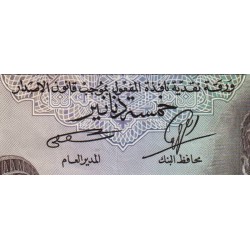 ورقة نقدية نافذة المفعول بموجب قانون الاصدار
خمسة دنانير
محافظ البنك المدير العام